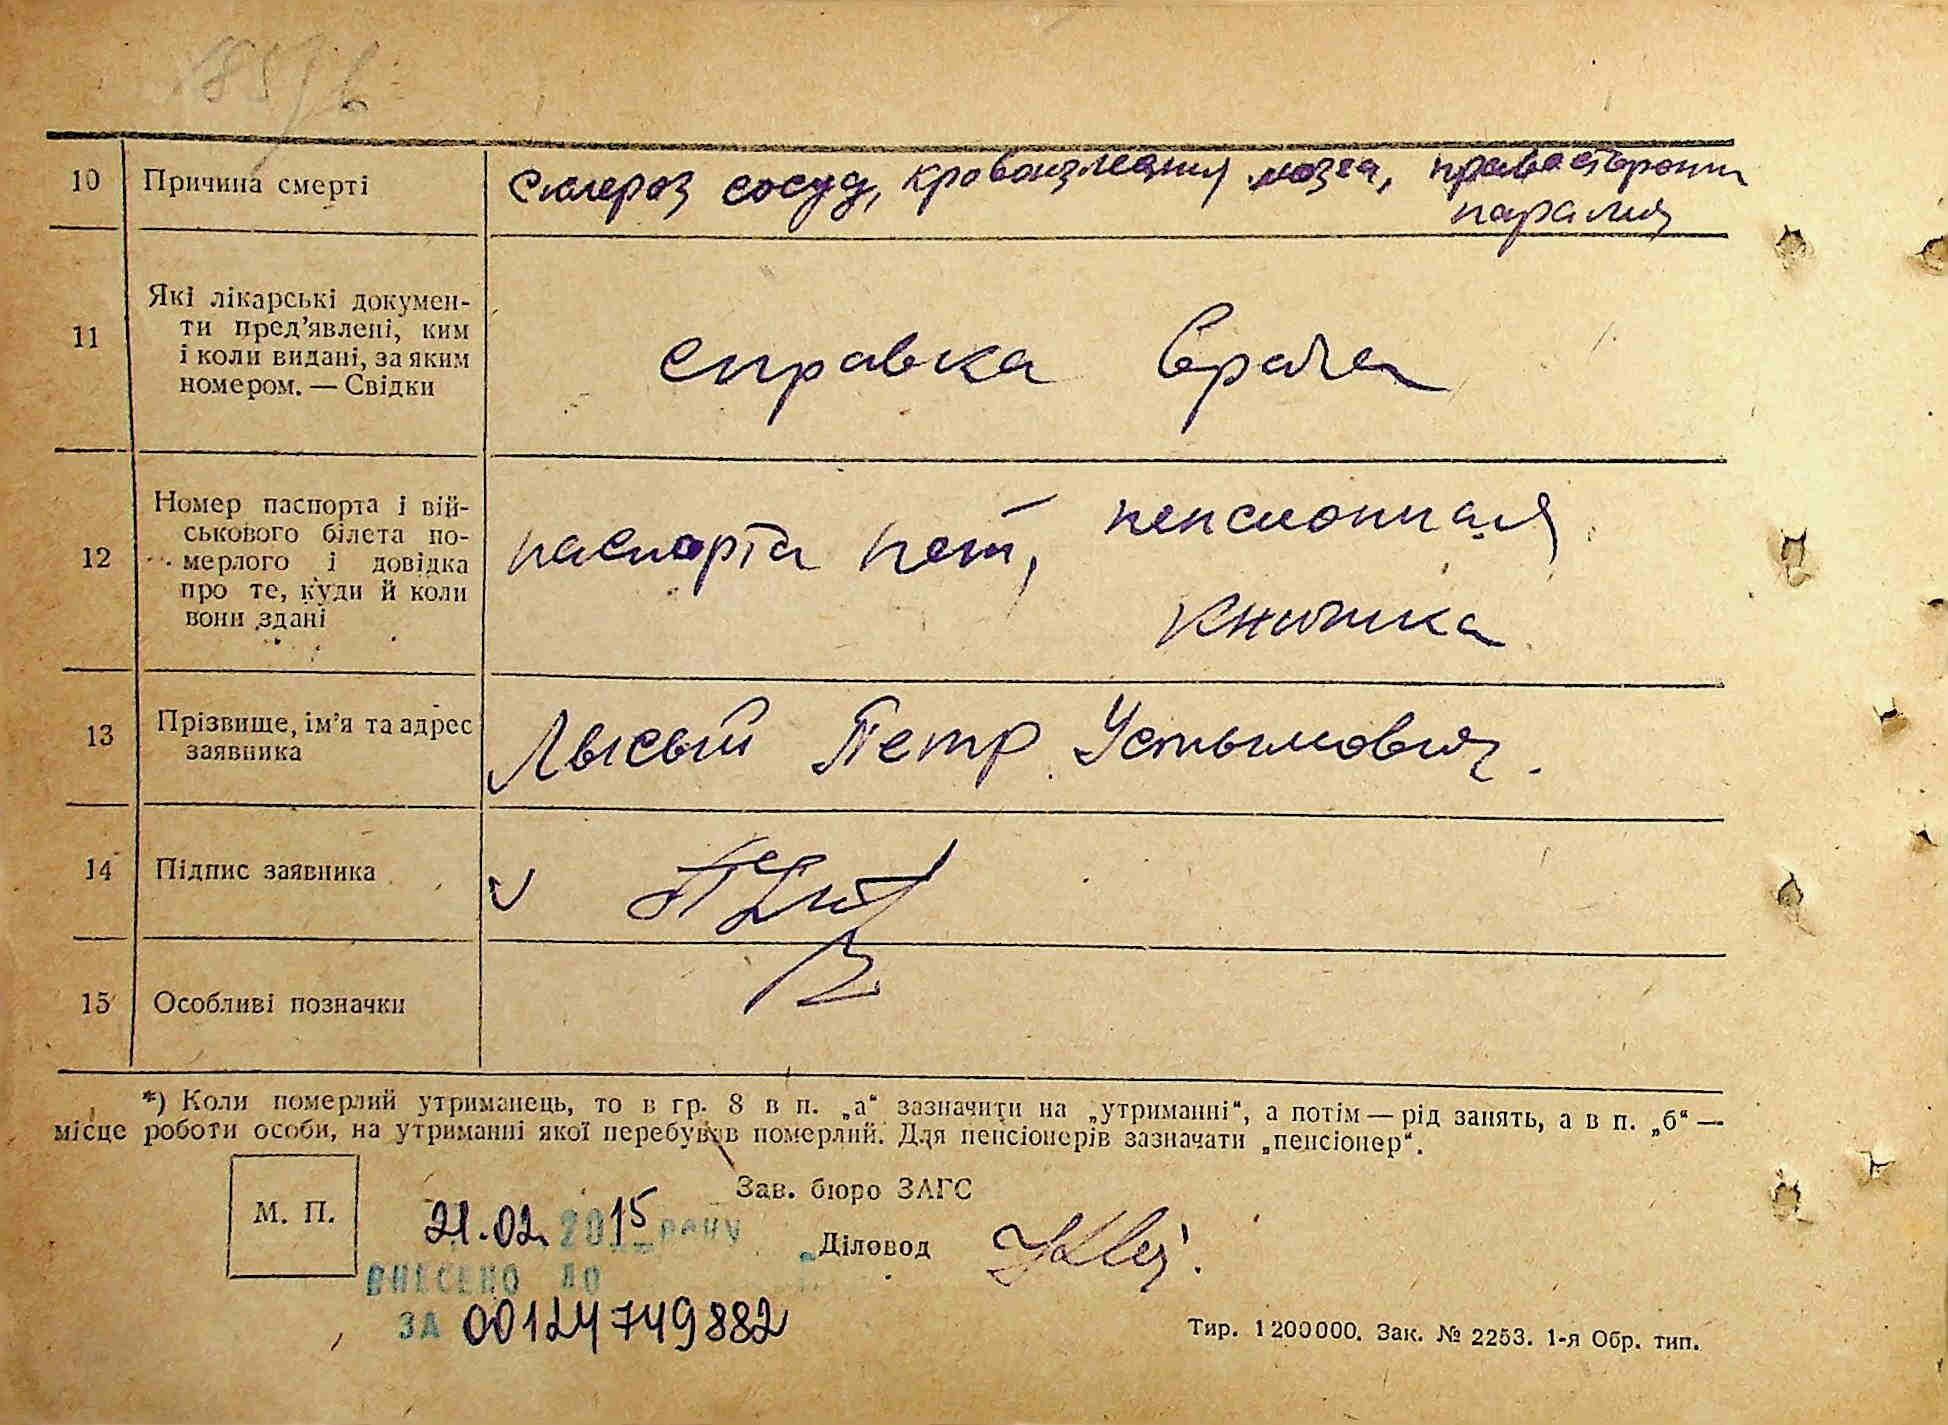 10 Причина смерті Склероз сосуд, кровоизлияния мозга, правосторонн
паралич
11 Які лікарські докумен-
ти пред’явлені, ким
і коли видані, за яким
номером. — Свідки
справка врача
12 Номер паспорта і вій-
ськового білета по-
мерлого і довідка
про те, куди й коли
вони здані
паспорта нет, пенсионная
книжка
13 Прізвище, ім’я та адрес
заявника
Лысый Петр Устымович.
14 Підпис заявника
15 Особливі позначки
*) Коли померлий утриманець, то в гр. 8 в п. „а“ зазначити на „утриманні“, а потім — рід занять, а в п. „б“ —
місце роботи особи, на утриманні якої перебував померлий. Для пенсіонерів зазначати „пенсіонер“.
М. П.
Зав. бюро ЗАГС
21.02.2015 року
Діловод
ВНЕСЕНО ДО
ЗА 00124749882
Тир. 1200000. Зак. № 2253. 1-я Обр. тип.